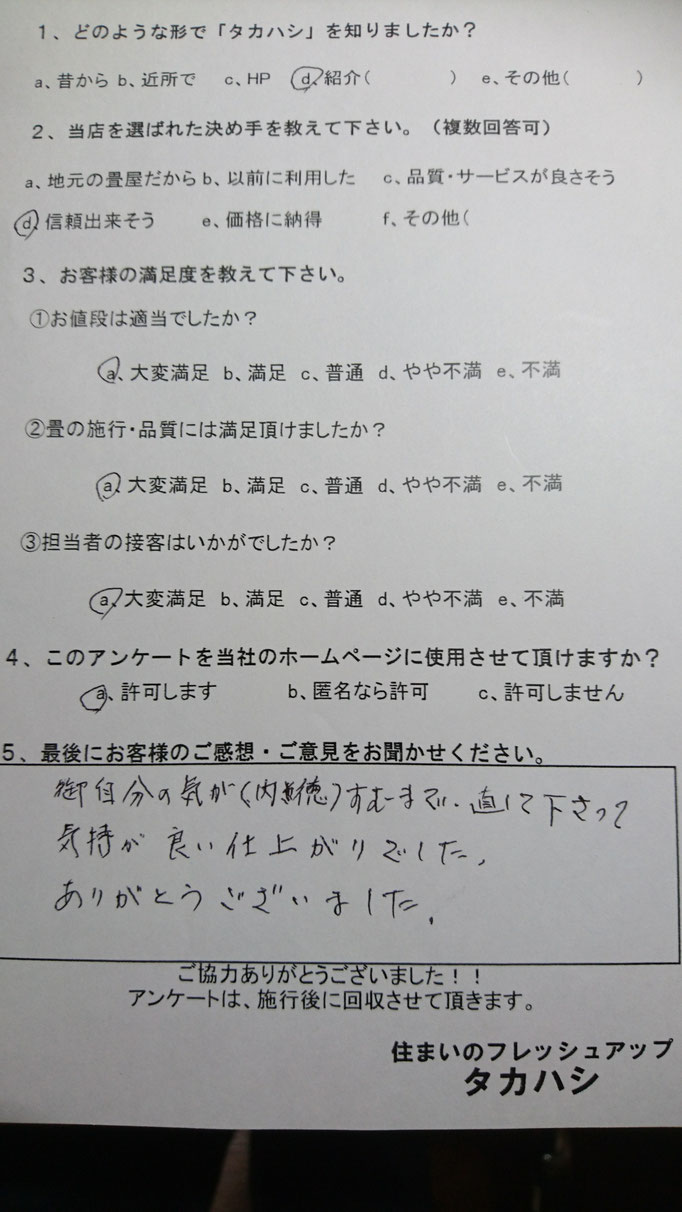 １、どのような形で「タカハシ」を知りましたか？
a、昔から b、近所で c、HP d、紹介( ) e、その他( )
２、当店を選ばれた決め手を教えて下さい。（複数回答可）
a、地元の畳屋だから b、以前に利用した c、品質・サービスが良さそう
d、信頼出来そう e、価格に納得 f、その他(
３、お客様の満足度を教えて下さい。
①お値段は適当でしたか？
a、大変満足 b、満足 c、普通 d、やや不満 e、不満
②畳の施行・品質には満足頂けましたか？
a、大変満足 b、満足 c、普通 d、やや不満 e、不満
③担当者の接客はいかがでしたか？
a、大変満足 b、満足 c、普通 d、やや不満 e、不満
４、このアンケートを当社のホームページに使用させて頂けますか？
a、許可します b、匿名なら許可 c、許可しません
５、最後にお客様のご感想・ご意見をお聞かせください。
御自分の気が( )すむまで、直して下さって
気持が良い仕上がりでした。
ありがとうございました。
ご協力ありがとうございました！！
アンケートは、施行後に回収させて頂きます。
住まいのフレッシュアップ
タカハシ